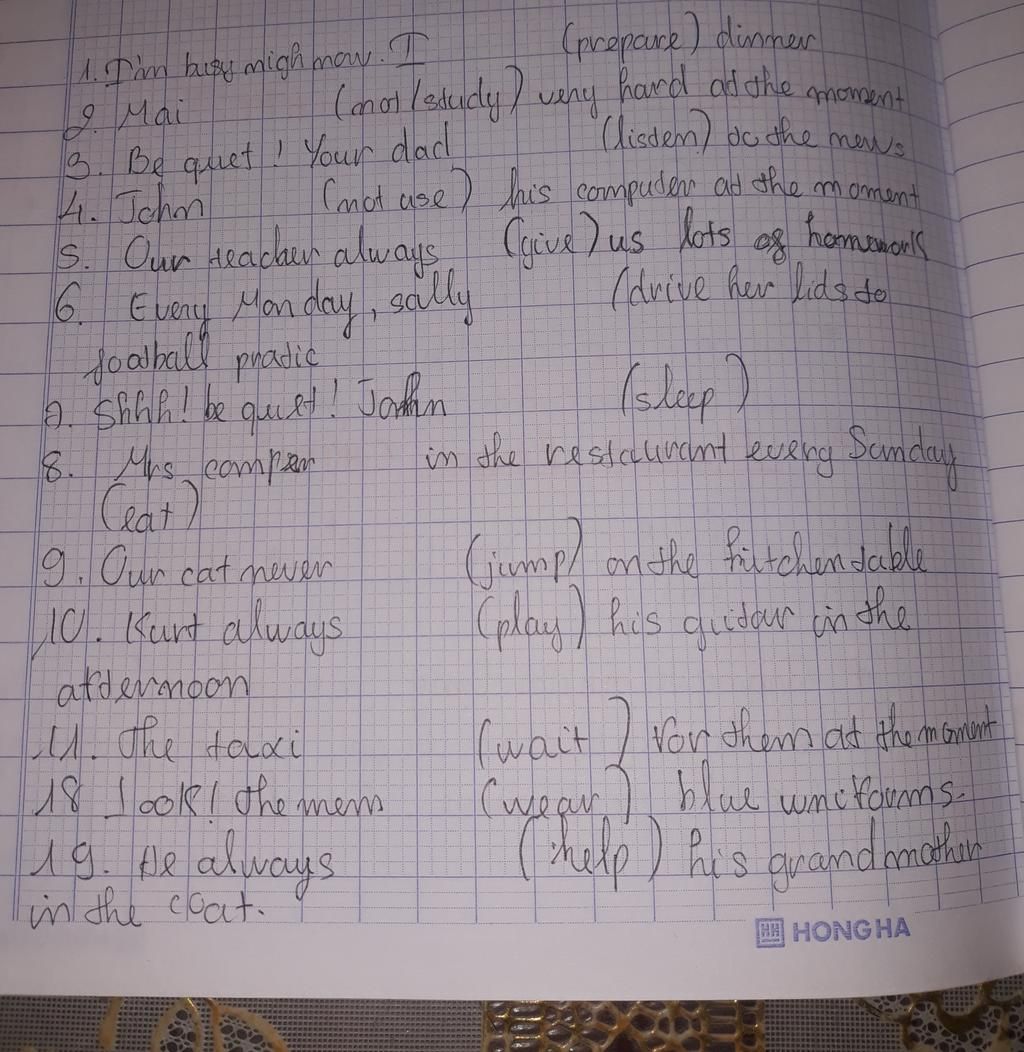 1. I'm busy nigh now. I (prepare) dinner
2. Mai (not/study) very hard at the moment
3. Be quet! Your dad (listen) to the news
4. John (not use) his computer at the moment
5. Our teacher always (give) us lots of homework
6. Every Monday, sally (drive her kids to
football pratic
7. Shhh! be quet! John (sleep)
8. Mrs comper in the restaurant every Sunday
(eat)
9. Our cat never (jump) on the kitchen table
10. Kurt always (play) his guitar in the
afternoon
11. The taxi (wait) for them at the moment
18 Look! the men (wear) blue uniforms.
19. He always (help) his grandmother
in the coat.
HH HONG HA